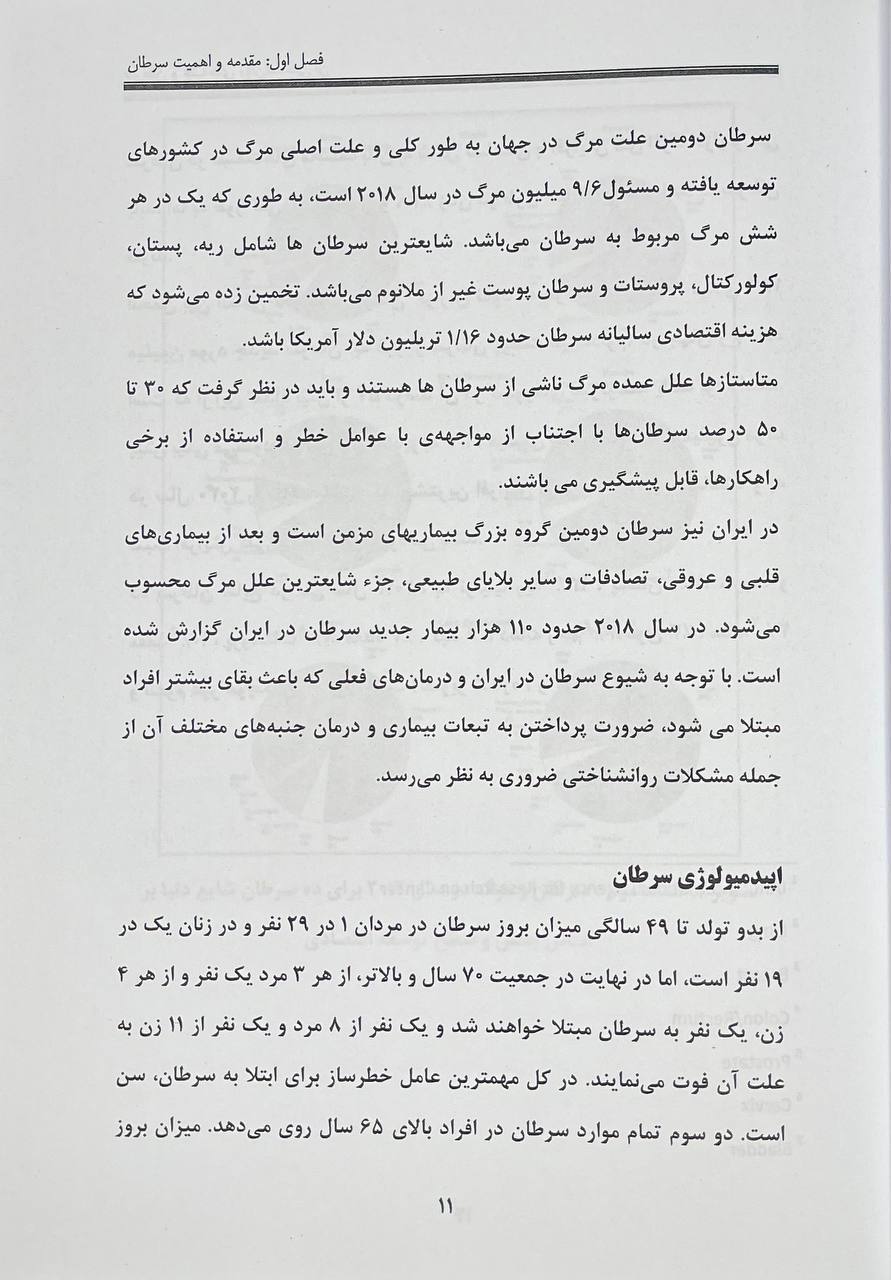 فصل اول: مقدمه و اهمیت سرطان
سرطان دومین علت مرگ در جهان به طور کلی و علت اصلی مرگ در کشورهای
توسعه یافته و مسئول۹/۶ میلیون مرگ در سال ۲۰۱۸ است، به طوری که یک در هر
شش مرگ مربوط به سرطان می‌باشد. شایعترین سرطان ها شامل ریه، پستان،
کولورکتال، پروستات و سرطان پوست غیر از ملانوم می‌باشد. تخمین زده می‌شود که
هزینه اقتصادی سالیانه سرطان حدود ۱/۱۶ تریلیون دلار آمریکا باشد.
متاستازها علل عمده مرگ ناشی از سرطان ها هستند و باید در نظر گرفت که ۳۰ تا
۵۰ درصد سرطان‌ها با اجتناب از مواجهه‌ی با عوامل خطر و استفاده از برخی
راهکارها، قابل پیشگیری می باشند.
در ایران نیز سرطان دومین گروه بزرگ بیماریهای مزمن است و بعد از بیماری‌های
قلبی و عروقی، تصادفات و سایر بلایای طبیعی، جزء شایعترین علل مرگ محسوب
می‌شود. در سال ۲۰۱۸ حدود ۱۱۰ هزار بیمار جدید سرطان در ایران گزارش شده
است. با توجه به شیوع سرطان در ایران و درمان‌های فعلی که باعث بقای بیشتر افراد
مبتلا می شود، ضرورت پرداختن به تبعات بیماری و درمان جنبه‌های مختلف آن از
جمله مشکلات روانشناختی ضروری به نظر می‌رسد.
اپیدمیولوژی سرطان
از بدو تولد تا ۴۹ سالگی میزان بروز سرطان در مردان ۱ در ۲۹ نفر و در زنان یک در
۱۹ نفر است، اما در نهایت در جمعیت ۷۰ سال و بالاتر، از هر ۳ مرد یک نفر و از هر ۴
زن، یک نفر به سرطان مبتلا خواهند شد و یک نفر از ۸ مرد و یک نفر از ۱۱ زن به
علت آن فوت می‌نمایند. در کل مهمترین عامل خطرساز برای ابتلا به سرطان، سن
است. دو سوم تمام موارد سرطان در افراد بالای ۶۵ سال روی می‌دهد. میزان بروز
۱۱